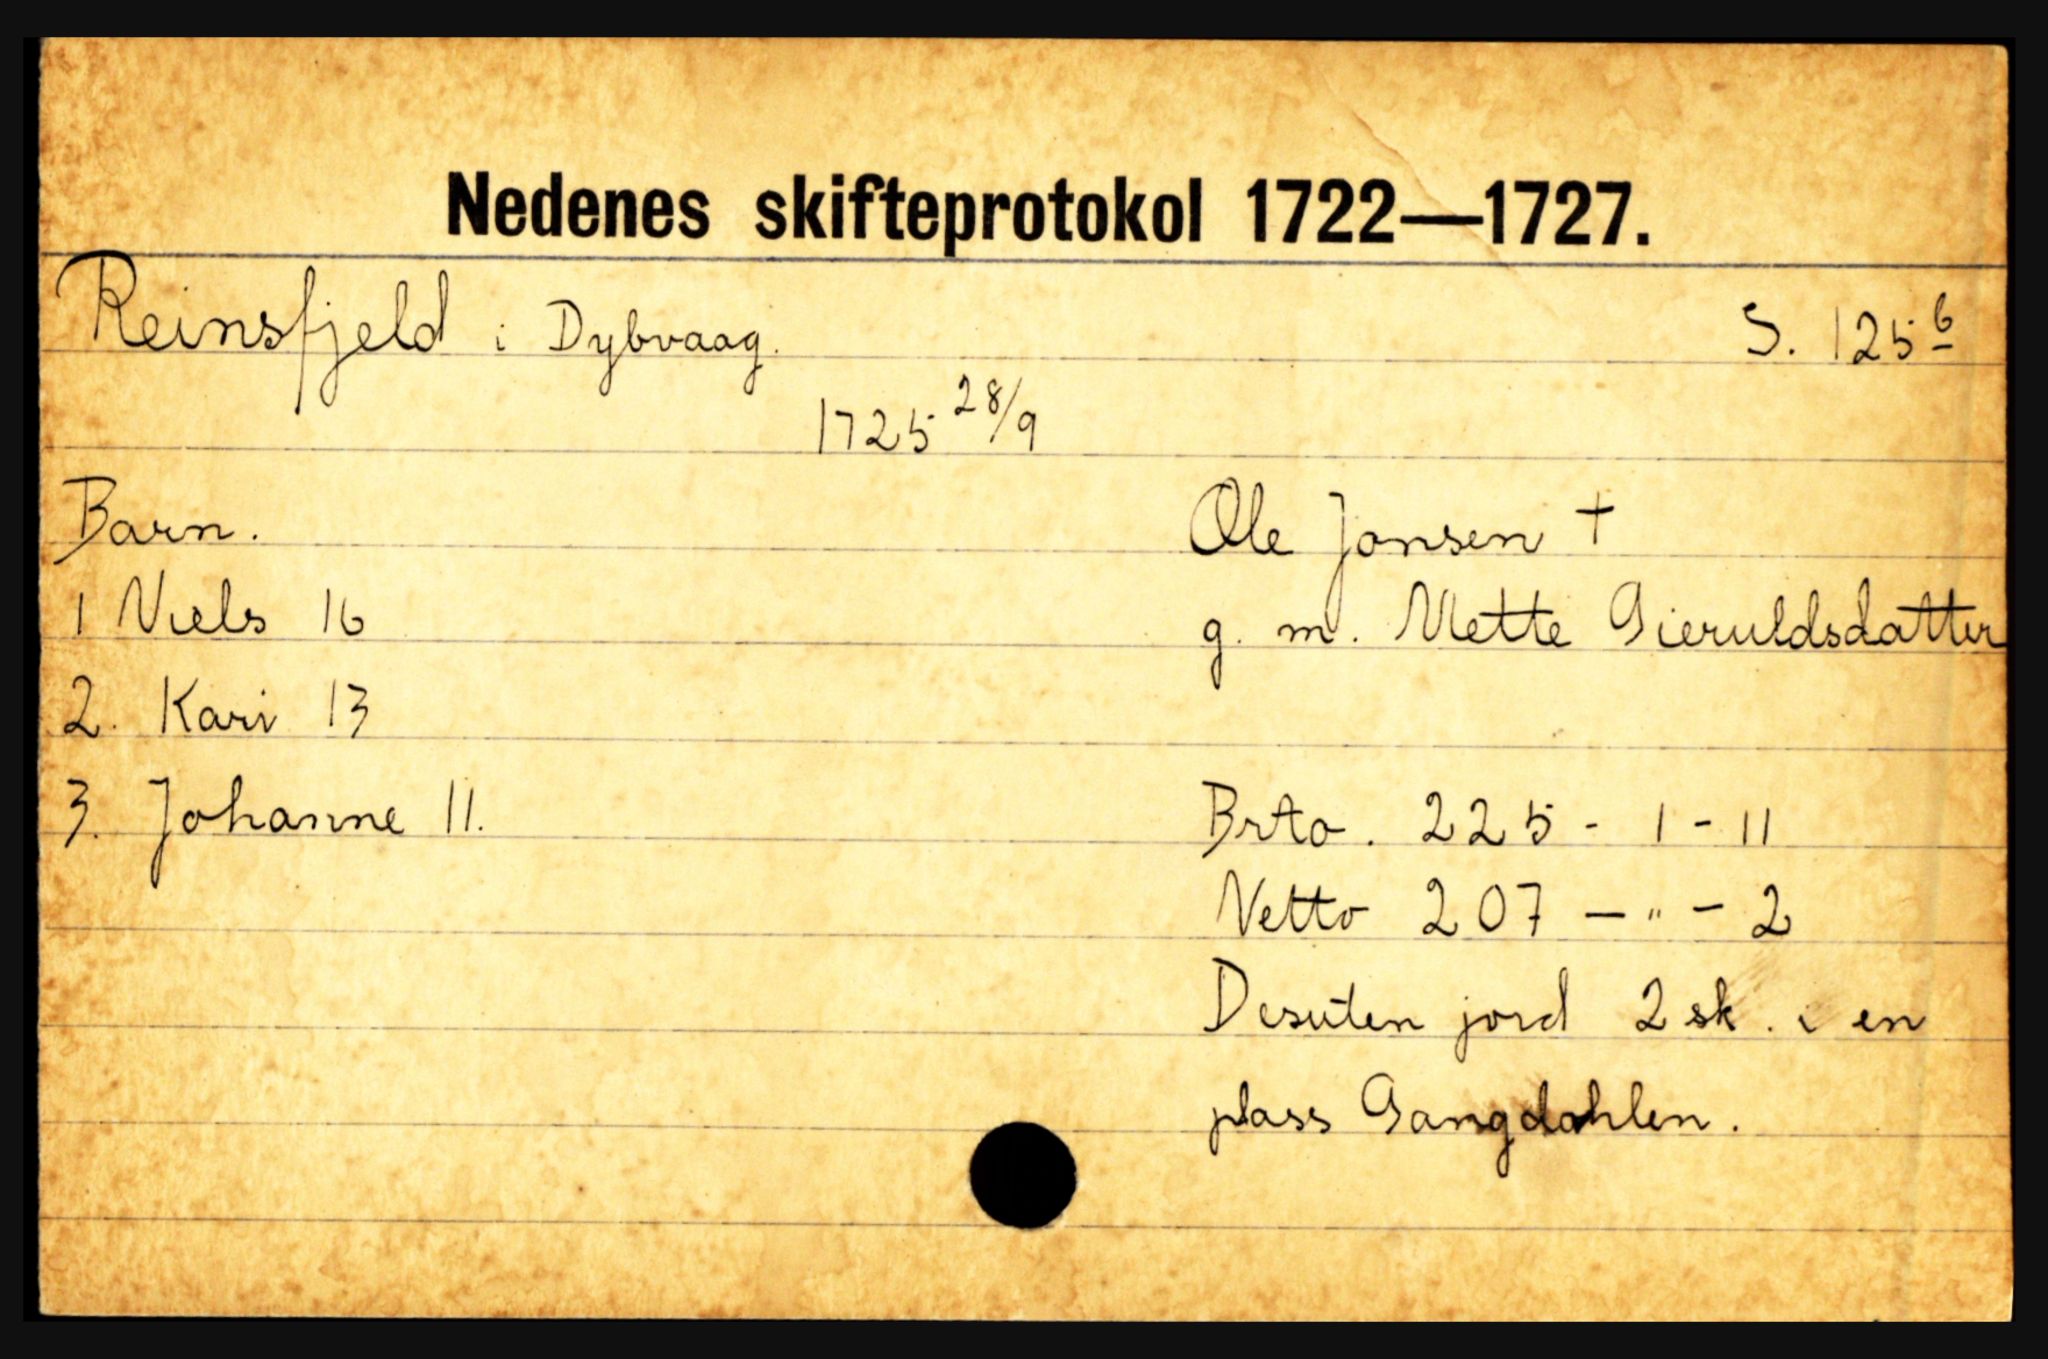 Nedenes skifteprotokol 1722—1727.
Reinsfjeld i Dybvaag. S. 125 b
1725 28/9
Barn.
1 Niels 16
2. Kari 13
3. Johanne 11.
Ole Jonsen †
g. m. Mette Gieruldsdatter
Brto. 225 - 1 - 11
Netto 207 - " - 2
Desuten jord 2 sk. i en
plass Gangdahlen.